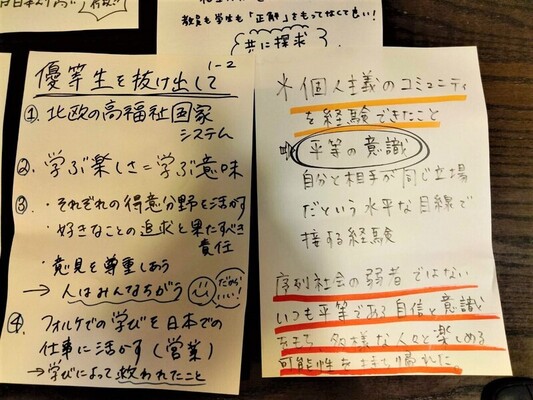 教員も学生も「正解」をもってなくて良い!
共に探求
優等生を抜け出して
1-2
① 北欧の高福祉国家
システム
②. 学ぶ楽しさ=学ぶ意味
③ ・それぞれの得意分野を活かす
・好きなことの追求と果たすべき
責任
・意見を尊重しあう
→ 人はみんなちがう
だから
いい!
④. フォルケでの学びを日本での
仕事に活かす(営業)
→学びによって救われたこと
* 個人主義のコミュニティ
を経験できたこと
平等の意識
自分と相手が同じ立場
だという水平な目線で
接する経験
序列社会の弱者ではない
いつも平等である自信と意識
をもち 多様な人々と楽しめる
可能性を持ち帰れた